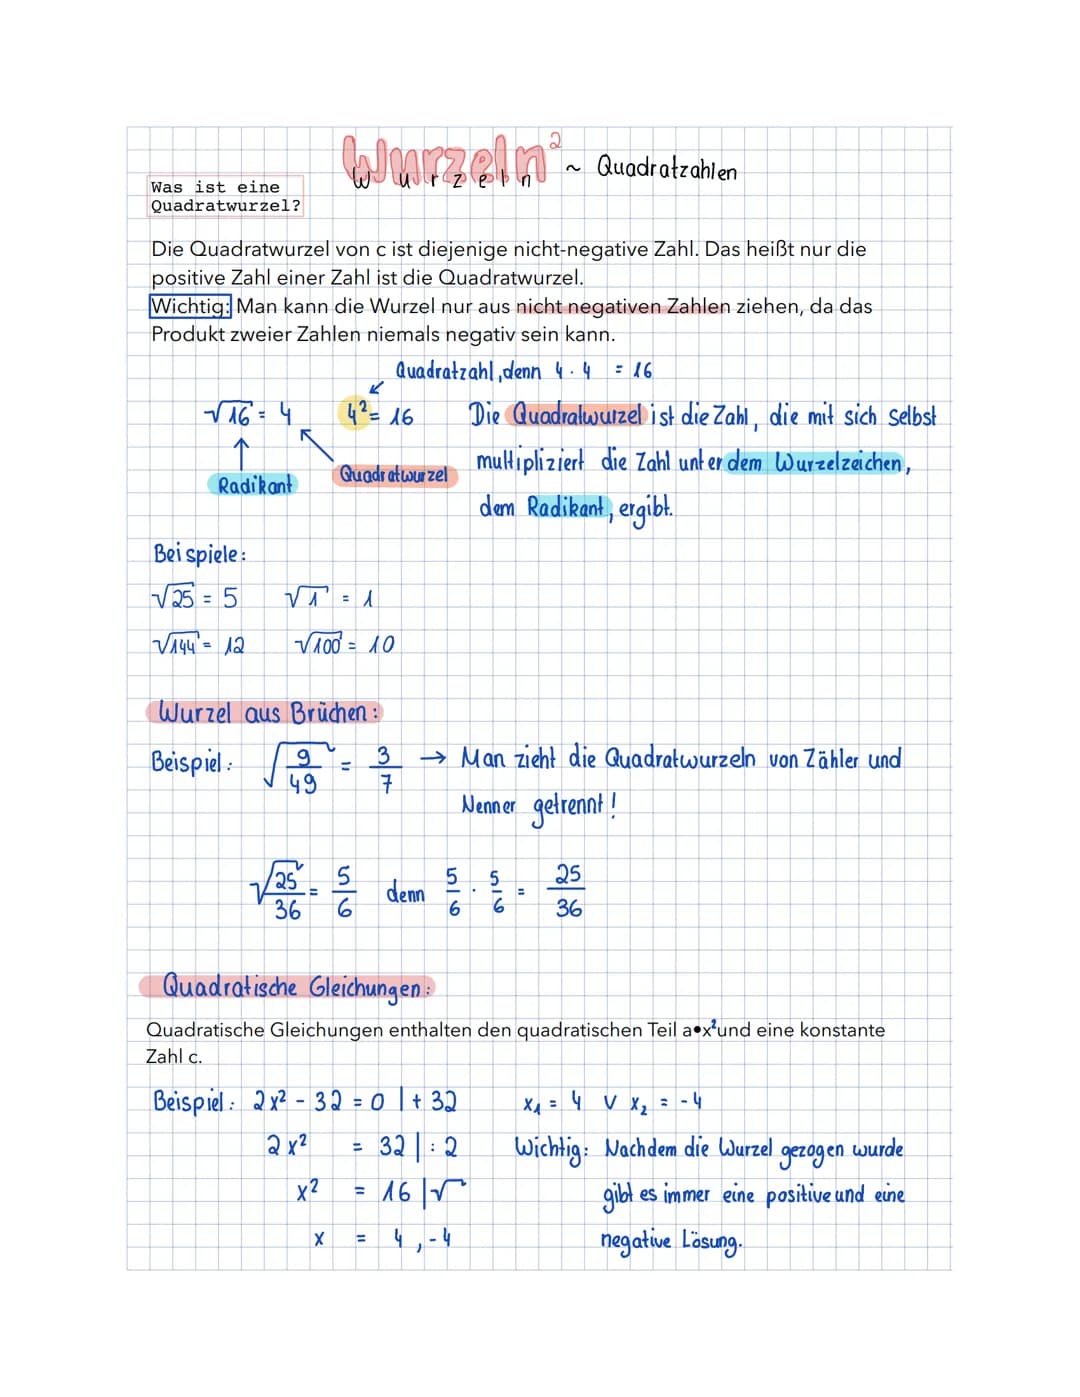 Wurzeln² ~ Quadratzahlen
Wurzeln
Was ist eine
Quadratwurzel?
Die Quadratwurzel von c ist diejenige nicht-negative Zahl. Das heißt nur die
positive Zahl einer Zahl ist die Quadratwurzel.
Wichtig: Man kann die Wurzel nur aus nicht negativen Zahlen ziehen, da das
Produkt zweier Zahlen niemals negativ sein kann.
Quadratzahl, denn 4 · 4 = 16
√16 = 4 4² = 16 Die Quadratwurzel ist die Zahl, die mit sich selbst
Radikant Quadratwurzel multipliziert die Zahl unter dem Wurzelzeichen,
dem Radikant, ergibt.
Beispiele:
√25 = 5 √1 = 1
√144 = 12 √100 = 10
Wurzel aus Brüchen:
Beispiel: √9/49 = 3/7 → Man zieht die Quadratwurzeln von Zähler und
Nenner getrennt!
√25/36 = 5/6 denn 5/6 · 5/6 = 25/36
Quadratische Gleichungen:
Quadratische Gleichungen enthalten den quadratischen Teil a•x² und eine konstante
Zahl c.
Beispiel: 2x² - 32 = 0 | + 32 x₁ = 4 V x₂ = -4
2x² = 32 | : 2 Wichtig: Nachdem die Wurzel gezogen wurde
x² = 16 | √ gibt es immer eine positive und eine
x = 4, -4 negative Lösung.